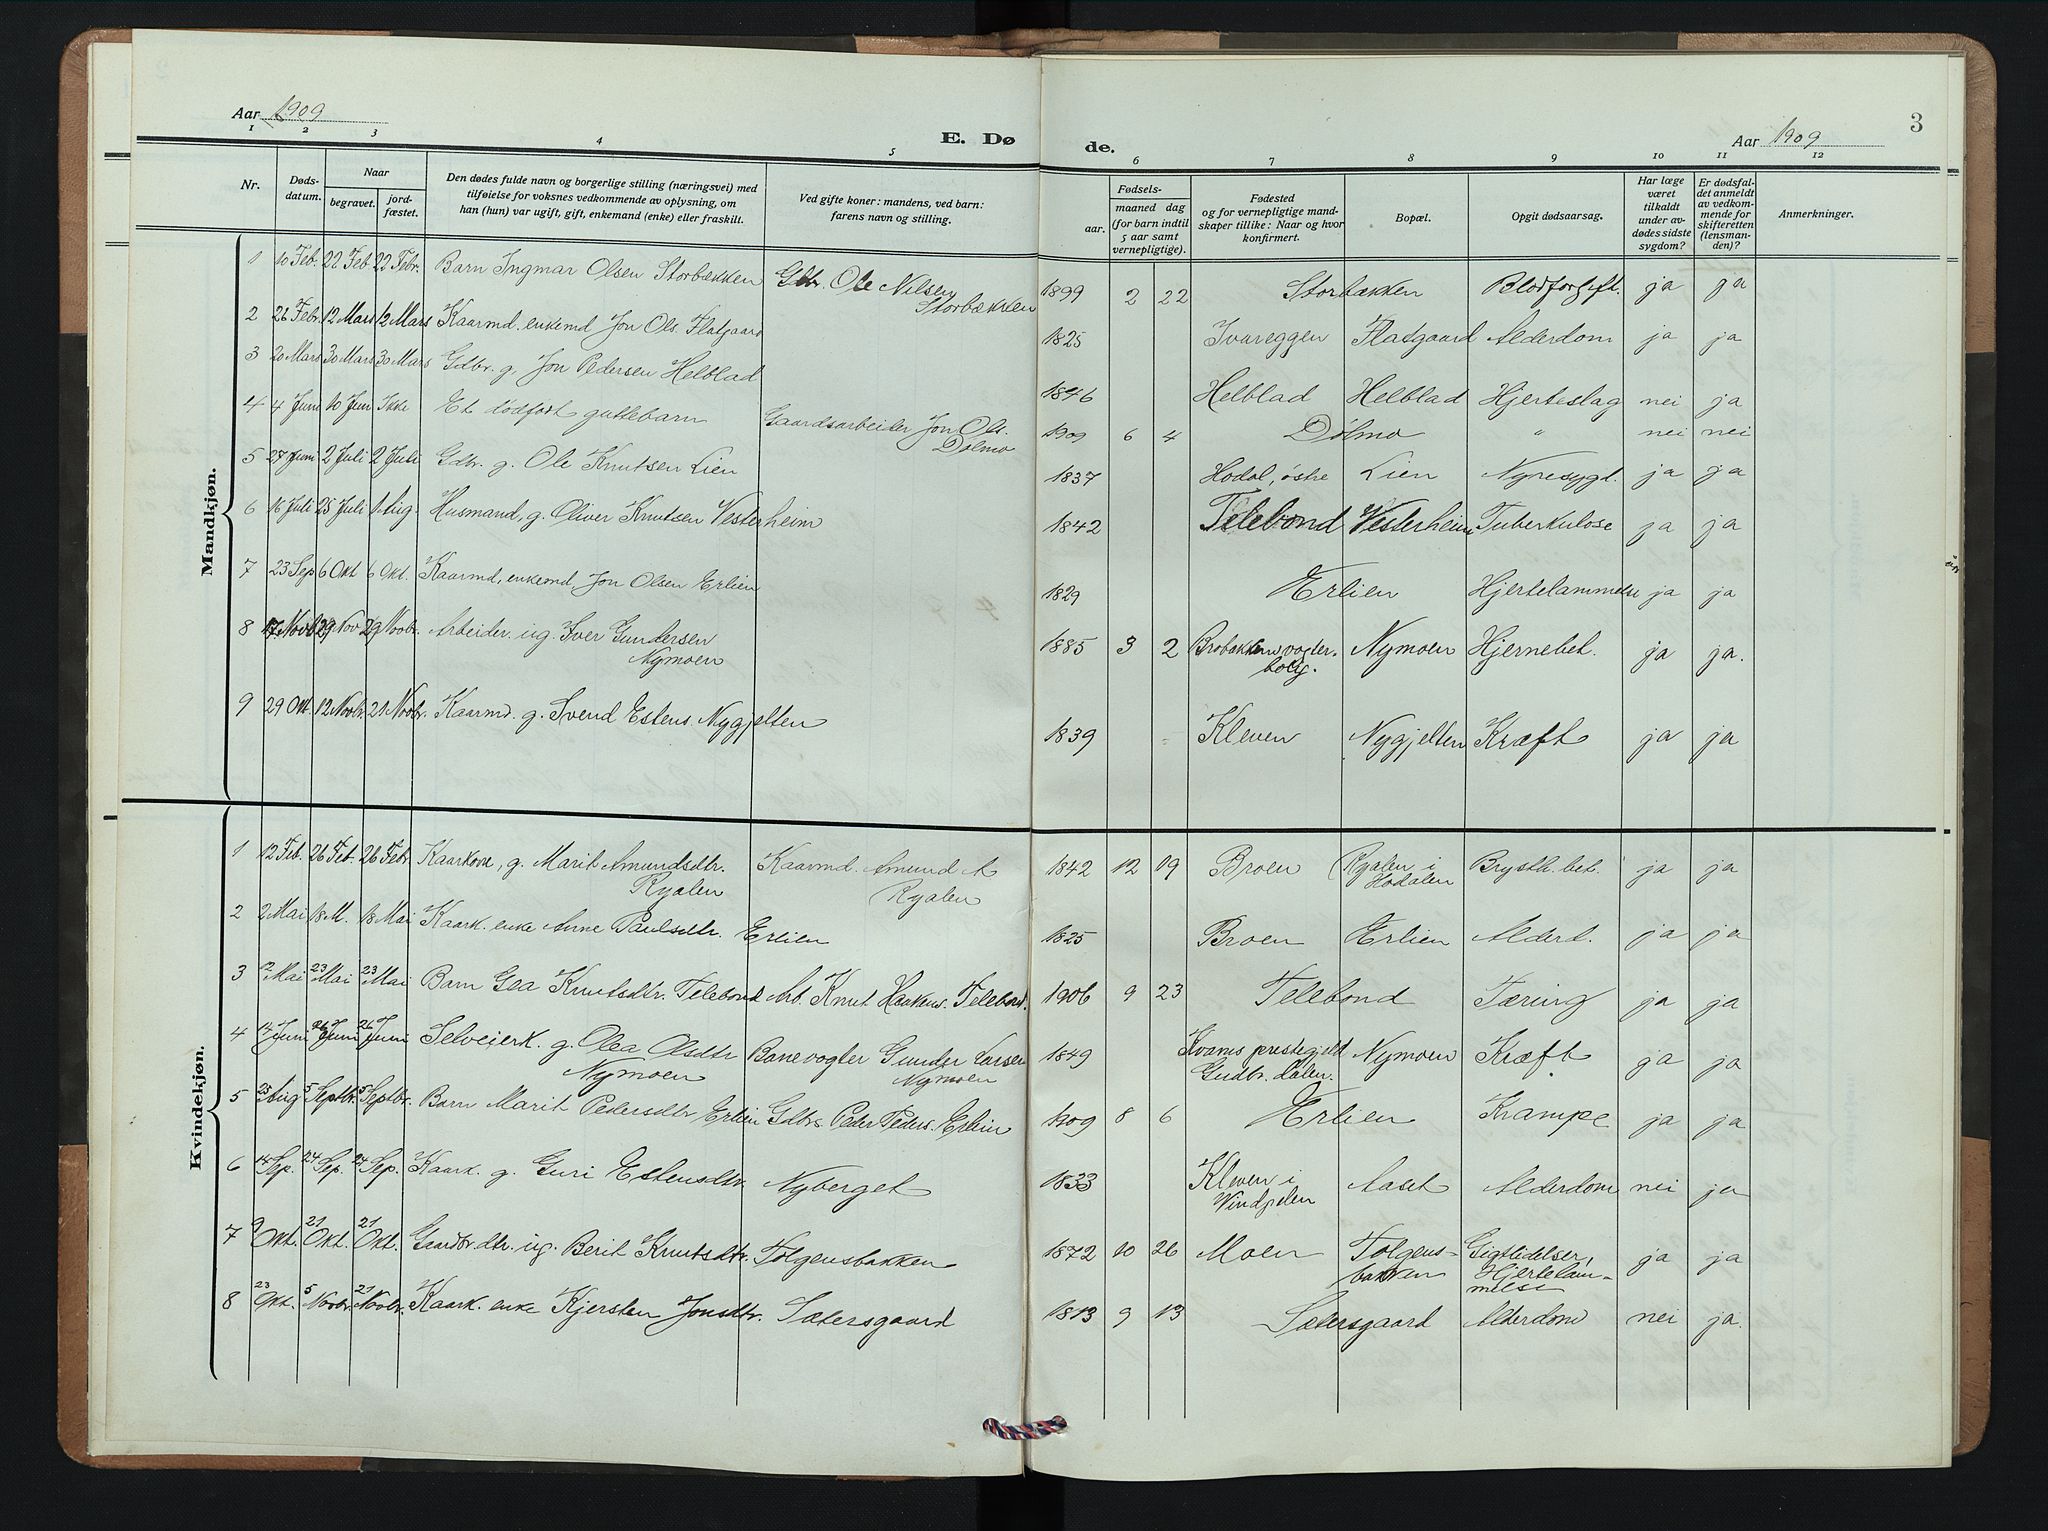 Aar 1909
E. Døde.
Aar 1909
3
1 2 3 4 5 6 7 8 9 10 11 12
Nr. | Dødsdatum. | Naar begravet. | Naar jordfæstet. | Den dødes fulde navn og borgerlige stilling (næringsvei) med tilføielse for voksnes vedkommende av oplysning, om han (hun) var ugift, gift, enkemand (enke) eller fraskilt. | Ved gifte koner: mandens, ved barn: farens navn og stilling. | Fødsels- aar. | maaned dag (for barn indtil 5 aar samt vernepligtige). | Fødested og for vernepligtige mandskaper tillike: Naar og hvor konfirmert. | Bopæl. | Opgit dødsaarsag. | Har læge været tilkaldt under avdødes sidste sygdom? | Er dødsfaldet anmeldt av vedkommende for skifteretten (lensmanden)? | Anmerkninger.
Mandkjøn.
1 10 Feb. 22 Feb 22 Febr. Barn Ingmar Olsen Storbækken Gdbr. Ole Nilsen Storbækken 1899 2 22 Storbækken Blodforgift. ja ja
2 26 Febr. 12 Mars 12 Mars Kaarmd. enkemd Jon Ols. Flatgaard 1825 Ivareggen Flatgaard Alderdom ja ja
3 20 Mars 30 Mars 30 Mars Gdbr. g. Jon Pedersen Helblad 1846 Helblad Helblad Hjerteslag nei ja
4 4 Juni 10 Jun Ikke Et dødfødt guttebarn Gaardsarbeider Jon Ols. Dølmo 1909 6 4 Dølmo " nei nei
5 27 Juni 2 Juli 2 Juli Gdbr. g. Ole Knutsen Lien 1837 Hodal, østre Lien Nyresygd. ja ja
6 16 Juli 25 Juli 1 Aug. Husmand, g. Oliver Knutsen Vesterheim 1842 Telebond Vesterheim Tuberkulose ja ja
7 23 Sep 6 Okt 6 Okt. Kaarmd, enkemd Jon Olsen Erlien 1829 Erlien Hjertelammelse ja ja
8 17 Novb 29 Nov 29 Novbr. Arbeider. ug. Iver Gundersen Nymoen 1885 3 2 Brobakkens vogterbolig. Nymoen Hjernebet. ja ja.
9 29 Okt. 12 Novbr. 21 Novbr. Kaarmd. g. Svend Estens. Nygjelten 1839 Kleven Nygjelten Kræft ja ja
Kvindekjøn.
1 12 Feb. 26 Feb. 26 Febr. Kaarkone, g. Marit Amundsdtr. Ryalen Kaarmd. Amund A Ryalen 1842 12 19 Broen Ryalen i Hodalen Brysth. bet. ja ja
2 2 Mai 18 M. 18 Mai Kaark. enke Anne Paulsdtr. Erlien 1825 Broen Erlien Alderd. ja ja
3 12 Mai 23 Mai 23 Mai Barn Gea Knutsdtr. Telebond Arb. Knut Haakens. Telebond. 1906 9 23 Telebond Tæring ja ja
4 14 Juni 26 Juni 26 Juni Selveierk. g. Olea Olsdtr Nymoen Banevogter Gunder Larsen Nymoen 1849 Kvams prestegjeld Gudbr. dalen. Nymoen Kræft ja ja
5 23 Aug 5 Septbr. 5 Septbr. Barn Marit Pedersdtr Erlien Gdbrs Peder Peders. Erlien 1909 8 6 Erlien Krampe ja ja
6 14 Sep. 24 Sep. 24 Sep. Kaark. g. Guri Estensdtr. Nyberget 1833 Kleven i Vindjelen Aaset Alderdom nei ja
7 9 Okt. 21 Okt. 21 Okt. Gaardbr. dtr. ug. Berit Knutsdtr. Tolgensbakken 1872 10 26 Moen Tolgensbakken Gigtlidelser, Hjertelammelse ja ja
8 23 Okt. 5 Novbr. 21 Novbr. Kaark. enke Kjersten Jonsdtr. Sætersgaard 1813 9 13 Sætersgaard Alderdom nei ja.